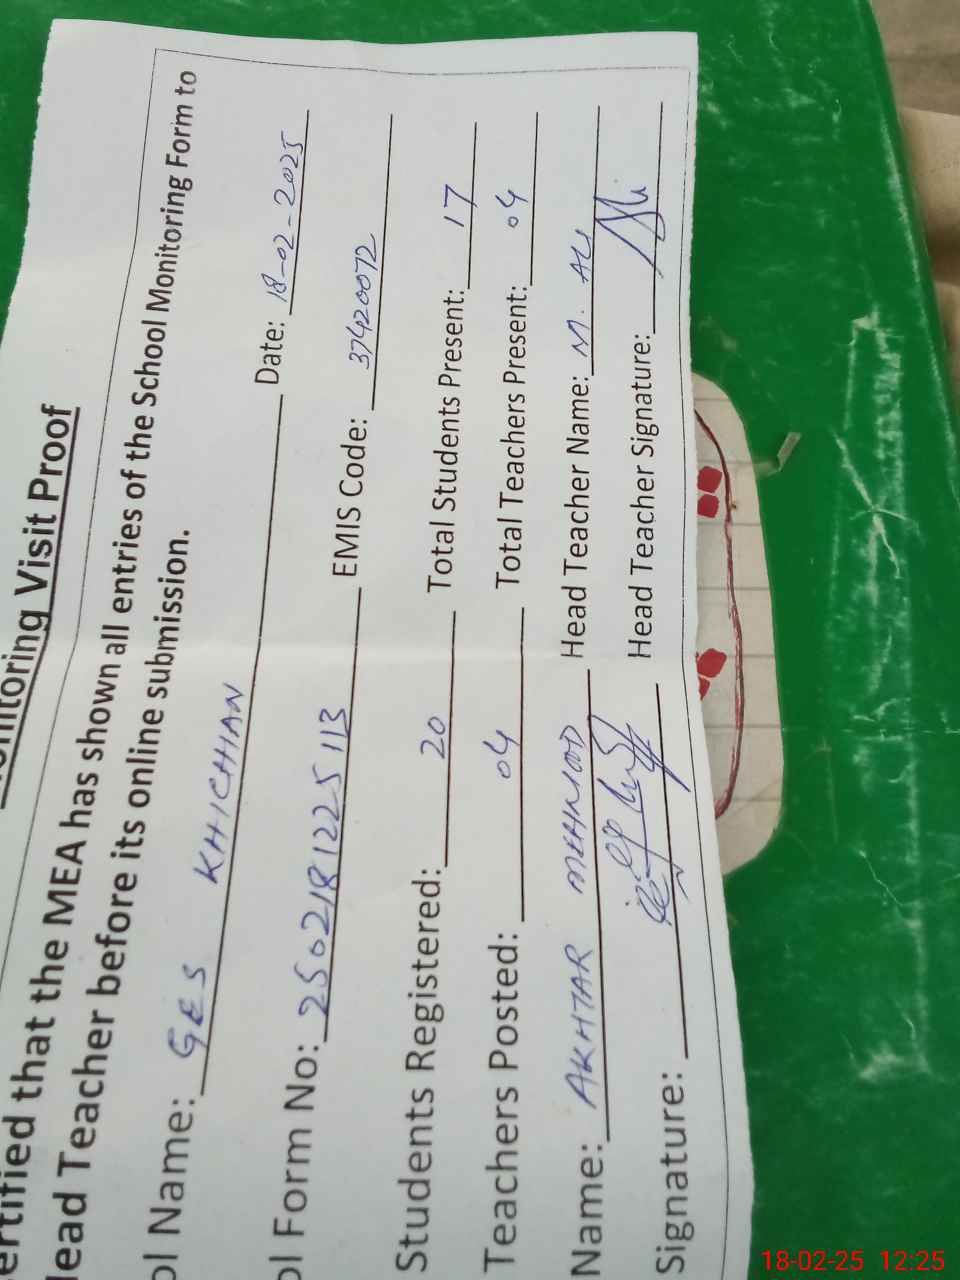 onitoring Visit Proof
ertified that the MEA has shown all entries of the School Monitoring Form to
lead Teacher before its online submission.
ol Name: GES KHICHIAN Date: 18-02-2025
ol Form No: 2502181225113 EMIS Code: 37420072
Students Registered: 20 Total Students Present: 17
Teachers Posted: 04 Total Teachers Present: 04
Name: AKHTAR MEHMOOD Head Teacher Name: M. ALI
Signature: Head Teacher Signature:
18-02-25 12:25